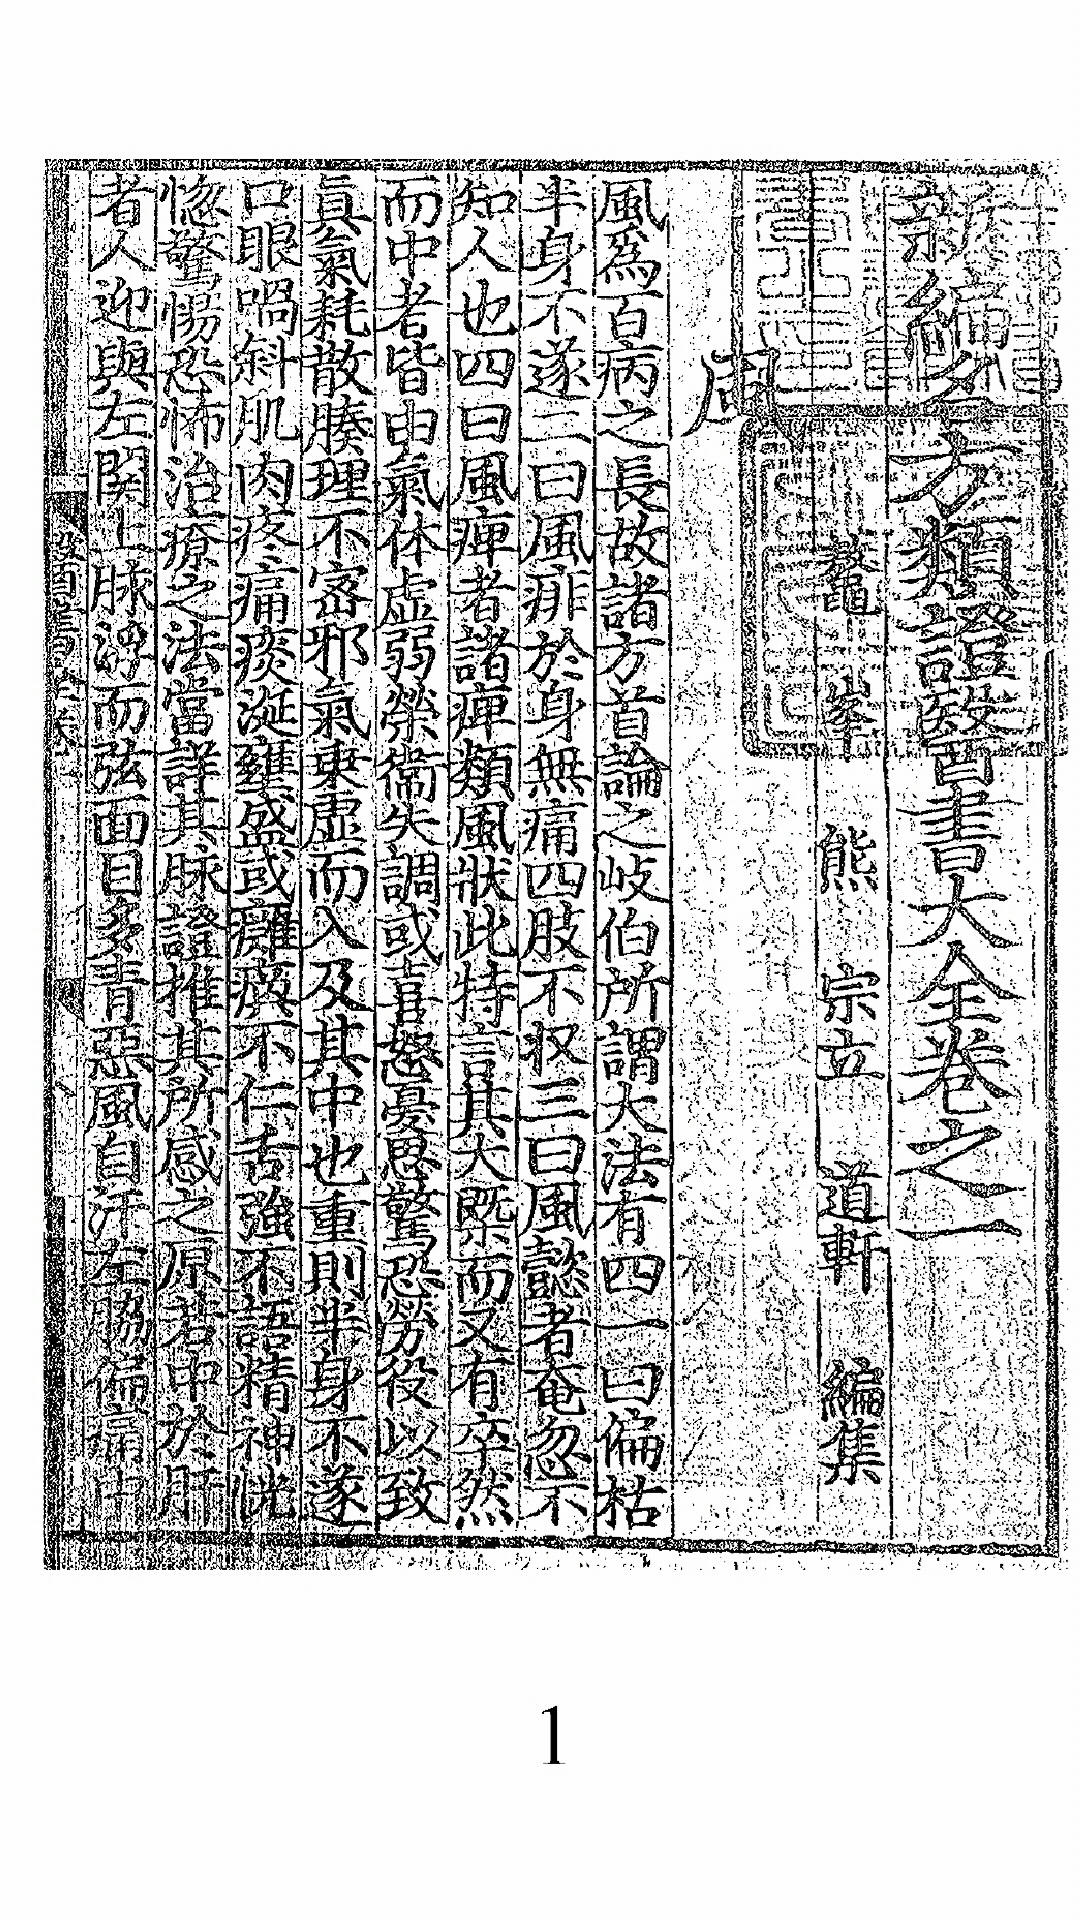 新編名方類證醫書大全卷之一
鼇峯 熊 宗立 道軒 編集
風
風爲百病之長故諸方首論之岐伯所謂大法有四一曰偏枯
半身不遂二曰風痱於身無痛四肢不収三曰風懿者奄忽不
知人也四曰風痺者諸痺類風狀此特言其大槩而又有卒然
而中者皆由氣体虛弱榮衞失調或喜怒憂思驚恐勞役以致
眞氣耗散腠理不密邪氣乗虛而入及其中也重則半身不遂
口眼喎斜肌肉疼痛痰涎壅盛或癱瘓不仁舌強不語精神恍
惚驚惕恐怖治療之法當詳其脉證推其所感之原若中於肝
者人迎與左関上脉浮而弦面目多青惡風自汗左脇偏痛中
1